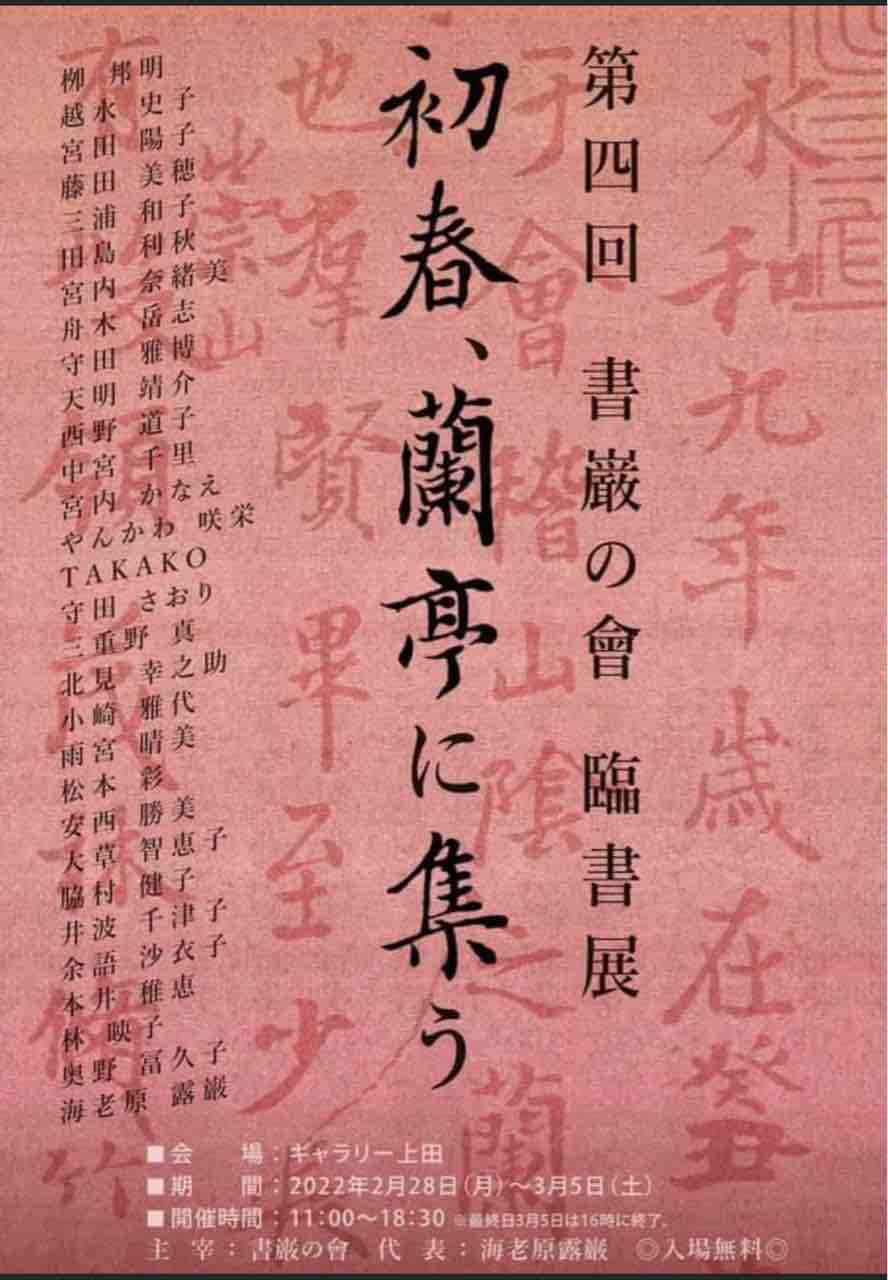 永和九年歳在癸丑
于會稽山陰之蘭
也羣賢畢至少
有
崇山
領茂林脩竹
第四回 書巌の會 臨書展
初春、蘭亭に集う
栁 邦明
越永史子
宮田陽子
藤田美穂
三浦和子
田島利秋
宮内奈緒美
舟木岳志
守田雅博
天明靖介
西野道子
中宮千里
宮内かなえ
やんかわ咲栄
TAKAKO
守田さおり
三重野真
北見幸之助
小崎雅代
雨宮晴美
松本彩
安西勝美
大草智恵子
脇村健子
井波千津子
余語沙衣子
本井稚恵
林映子
奥野冨久子
海老原露巌
■会　場：ギャラリー上田
■期　間：2022年2月28日(月)〜3月5日(土)
■開催時間：11:00〜18:30 ※最終日3月5日は16時に終了。
主宰：書巌の會 代表：海老原露巌 ◎入場無料◎